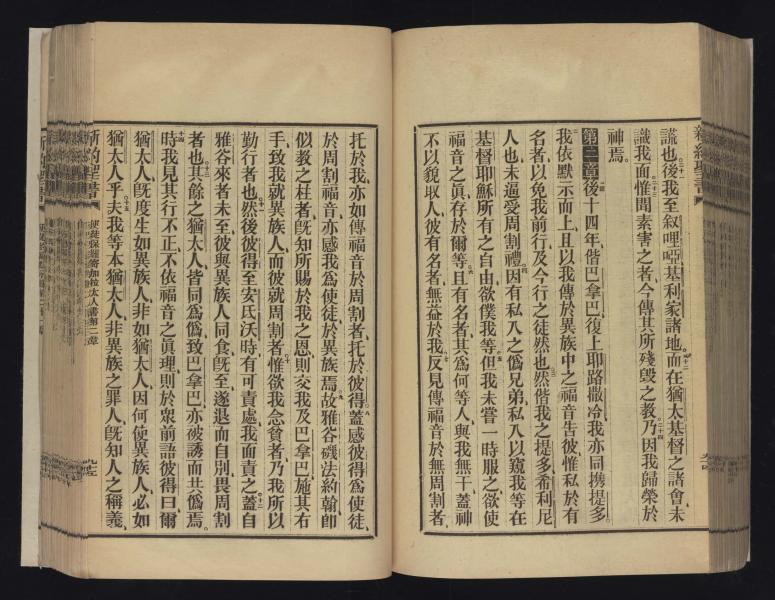 謊也後我至叙哩啞基利家諸地而在猶太基督之諸會未
識我面惟聞素害之者今傳其所殘毀之教乃因我歸榮於
神焉
第二章後十四年偕巴拿巴復上耶路撒冷我亦同携提多
我依默示而上且以我傳於異族中之福音告彼惟私於有
名者以免我前行及今行之徒然也然偕我之提多希利尼
人也未逼受周割禮因有私入之僞兄弟私入以窺我等在
基督耶穌所有之自由欲僕我等但我未嘗一時服之欲使
福音之眞存於爾等且有名者其爲何等人與我無干蓋神
不以貌取人彼有名者無益於我反見傳福音於無周割者
托於我亦如傳福音於周割者托於彼得蓋感彼得爲使徒
於周割福音亦感我爲使徒於異族焉故雅谷磯法約翰卽
似教之柱者旣知所賜於我之恩則交我及巴拿巴施其右
手致我就異族人而彼就周割者惟欲我念貧者乃我所以
勤行者也然後彼得至安氏沃時有可責處我面責之蓋自
雅谷來者未至彼與異族人同食旣至遂退而自別畏周割
者也其餘之猶太人皆同爲僞致巴拿巴亦被誘而共僞焉
時我見其行不正不依福音之眞理則於衆前語彼得曰爾
猶太人旣度生如異族人非如猶太人因何使異族人必如
猶太人乎夫我等本猶太人非異族之罪人旣知人之稱義
新約聖書
使徒保羅寄加拉太人書第二章